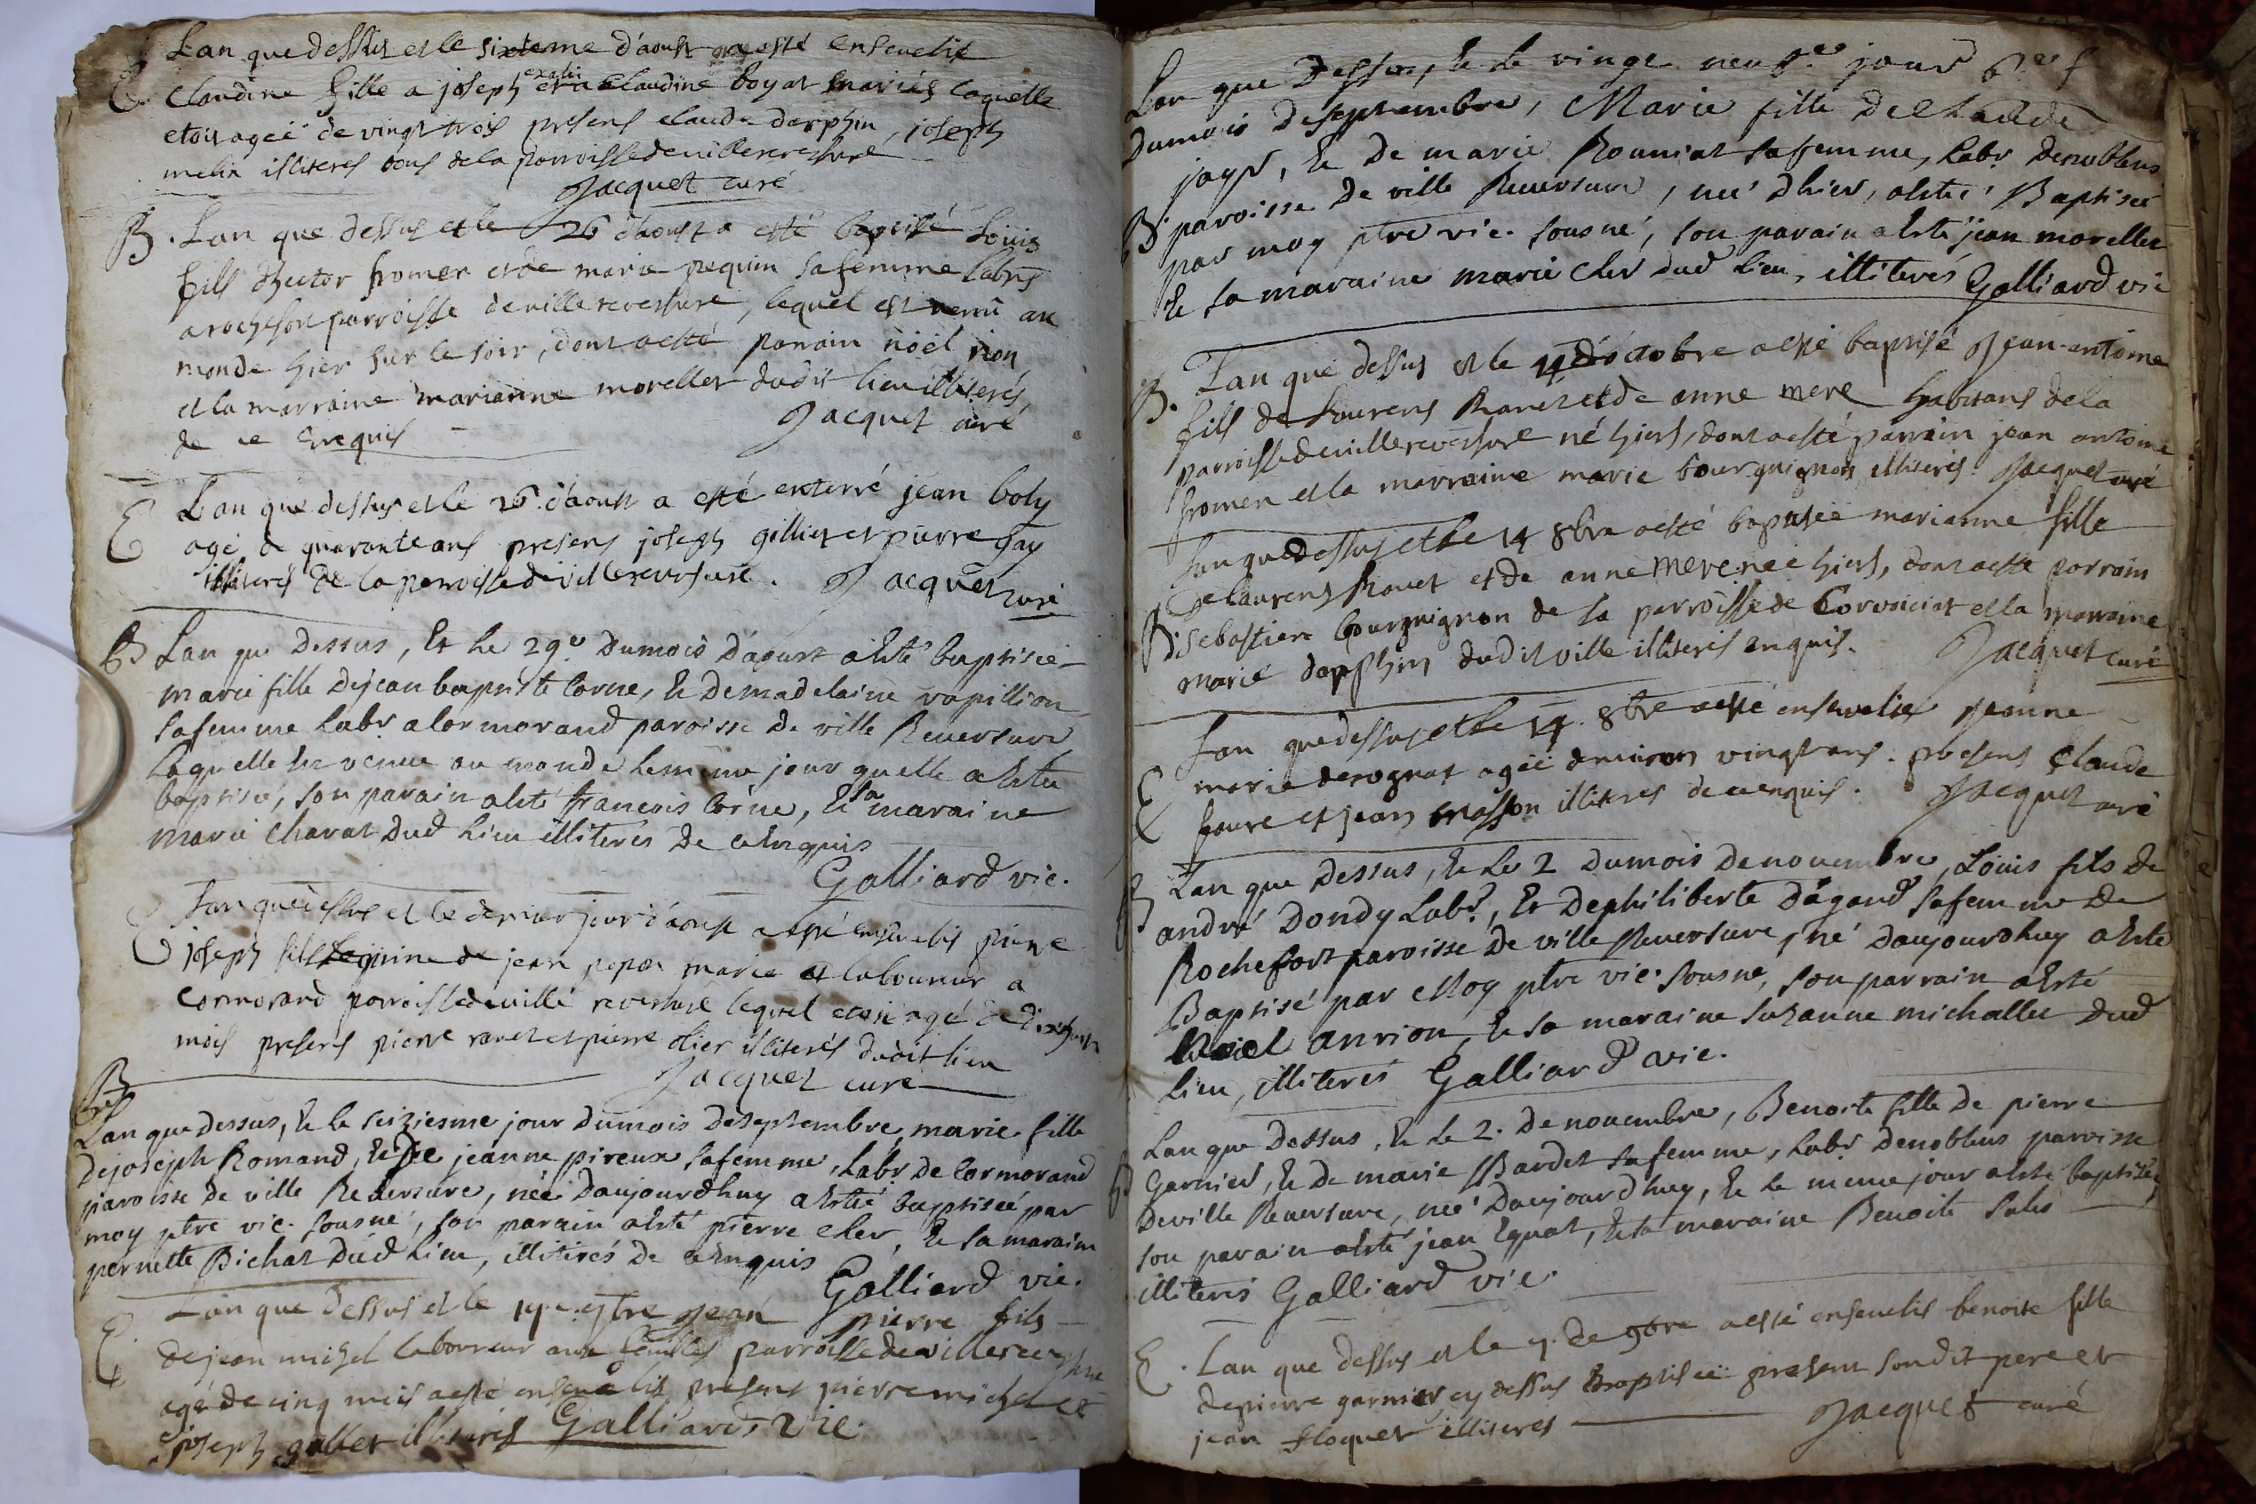 Lan que dessus et le sixieme d'aoust a esté ensevelie
E. Claudine fille a joseph et a Claudine boyat mariés laquelle
etoit agée de vingt trois presens claude darphin, joseph
illiteres tous de la parroisse de villereversure
Jacquet curé
B. Lan que dessus et le 26 d'aoust a esté baptisé Louis
fils d'hector fromen et de marie pequin sa femme labrs
a rochefort parroisse de villereversure, lequel est venu au
monde hier sur le soir, dont a esté parrain noël rion
et la marraine marianne morellet dudit lieu illiterés
de ce enquis Jacquet curé
E Lan que dessus et le 26 d'aoust a esté enterré jean boly
agé de quarante ans presens joseph gilliet et pierre gay
illiterés de la parroisse de villereversure. Jacquet curé
B Lan que Dessus, Et Le 29e Dumois D'aoust a esté baptisée
marie fille Dejean baptiste Corne, & Demadelaine vapillion
safemme Labr a Cormorand paroisse De ville Reversure
Laquelle est venue au monde Lememe jour quelle a estée
baptisée, son parain a esté francois Corne, & sa maraine
marie Charat Dud Lieu illiterés De ce enquis
Galliard vic.
E Lan que dessus et le dernier jour d'aoust a esté ensevelis pierre
joseph fils legitime de jean pepon marie et laboureur a
Cormorand parroisse de ville reversure lequel etoit agé de dix huit
mois presens pierre ravet et pierre olier illiterés dudit lieu
Jacquet curé
B
Lan que dessus, & le seiziesme jour Dumois Deseptembre, marie fille
Dejoseph Romand, & De jeanne pireux safemme, Labr de Cormorand
paroisse de ville Reversure, née Daujourdhuy a estée baptisée par
moy ptre vic. sousné, son parain a esté pierre Cler, & sa maraine
pernette Bichat Dud Lieu, illiterés De ce enquis
Galliard vic.
E. Lan que dessus et le 7tre Jean pierre fils
de jean michel laboureur aux parroisse de villereversure
agé de cinq mois a esté ensevelis presens pierre michel et
joseph gallet illiterés Galliard, vic.
Lan que Dessus, & le vingt neufe jour
Dumois Deseptembre, Marie fille De Claude
jayr, & De marie Rouniat safemme, Labr Denoblens
B. paroisse De ville Reversure, née d'hier, a esté Baptisée
par moy ptre vic. sousné, son parain a esté jean morellet
& sa maraine marie Cler dud Lieu, illiterés Galliard vic
B. Lan que dessus et le 14 d'octobre a esté baptisé Jean-antoine
fils de Laurens Ravet et de anne mere habitans de la
parroisse de villereversure né hiers, dont a esté parrain jean antoine
fromen et la marraine marie bourguignon illiterés. Jacquet curé
Lan que dessus et le 14 8bre a esté baptisée marianne fille
de laurens Ravet et de anne mere née hiers, dont a esté parrain
B. sebastien bourguignon de la parroisse de Corvoiciat et la marraine
marie darphin dudit ville illiterés enquis. Jacquet curé
Lan que dessus et le 14. 8bre a esté ensevelie Jeanne
E marie derognat agée denviron vingt ans. presens Claude
favre et jean masson illiteres de ce enquis. Jacquet curé
B Lan que Dessus, & Le 2 Dumois Denovembre, Louis fils De
andré Dondy Labr, Et Dephiliberte Dagand safemme De
Rochefort paroisse De ville Reversure, né Daujourdhuy a esté
Baptisé par Moy ptre vic. sousné, son parrain a esté
Noël anrion, & sa maraine suzanne michallet Dud
Lieu, illiterés Galliard vic.
Lan que Dessus, & Le 2. De novembre, Benoite fille De pierre
B Garnier, & De marie Bardet safemme, Labr Denoblens paroisse
Deville Reversure, née Daujourdhuy, & le meme jour a esté baptisée,
son parain a esté jean Eynat, & sa maraine Benoite
illiterés Galliard vic.
E. Lan que dessus et le 7. De 9bre a esté ensevelis benoite fille
de pierre garnier cy dessus Baptisée present sondit pere et
jean floquet illiteres Jacquet curé